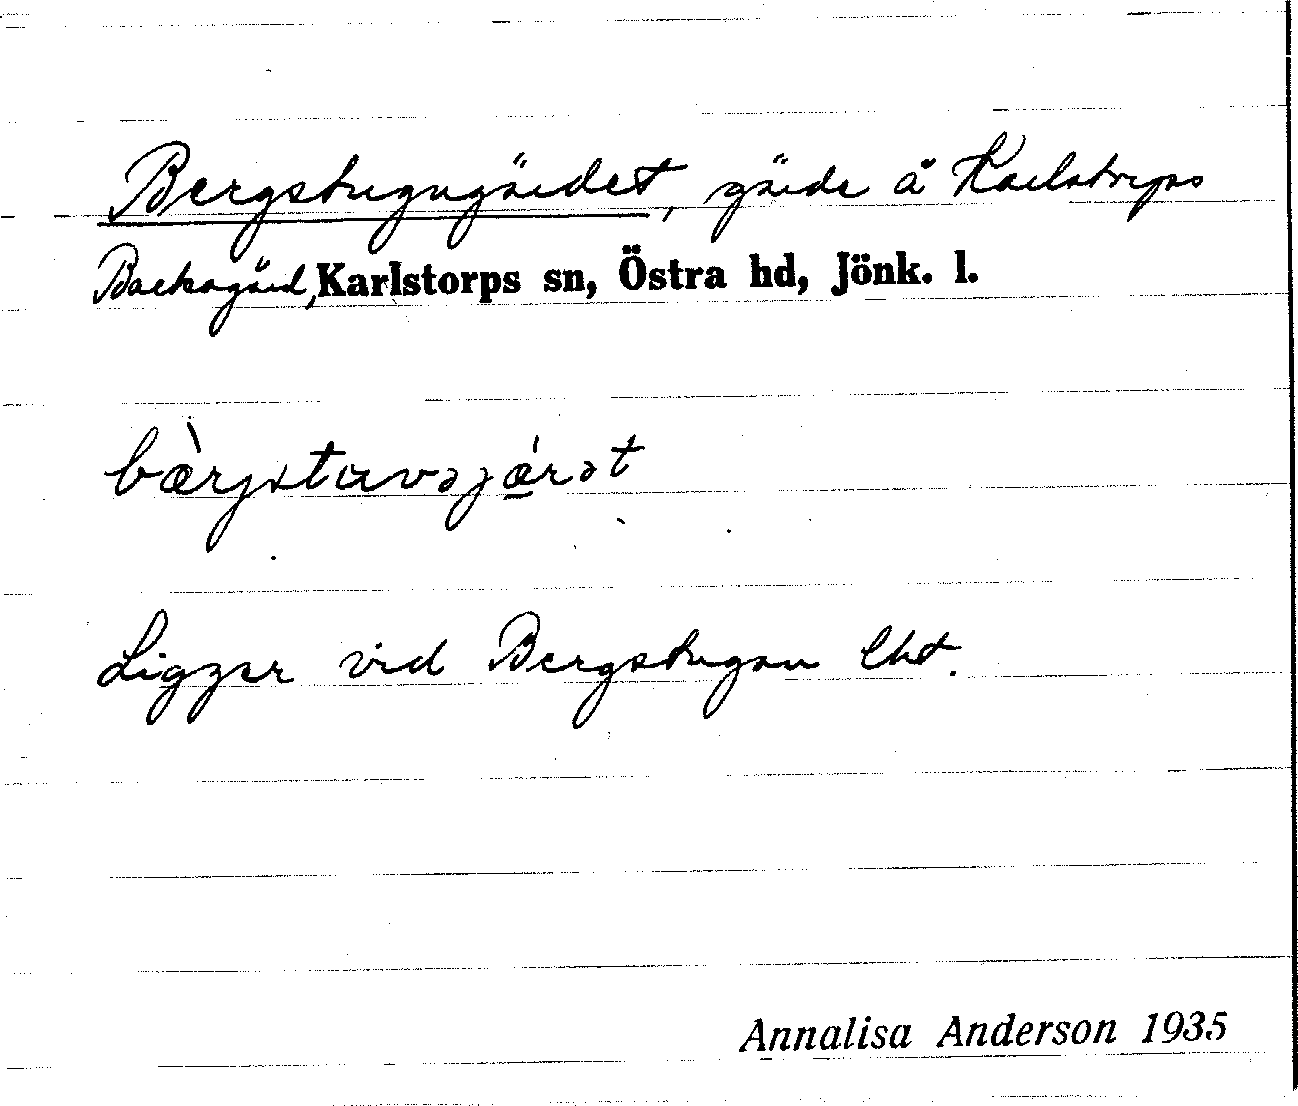 Bergstugugärdet, gärde å Karlstorps
Backagärd, Karlstorps sn, Östra hd, Jönk. l.
bæ̀rjstuvəjǽ̲rət
Ligger vid Bergstugan lht.
Annalisa Anderson 1935